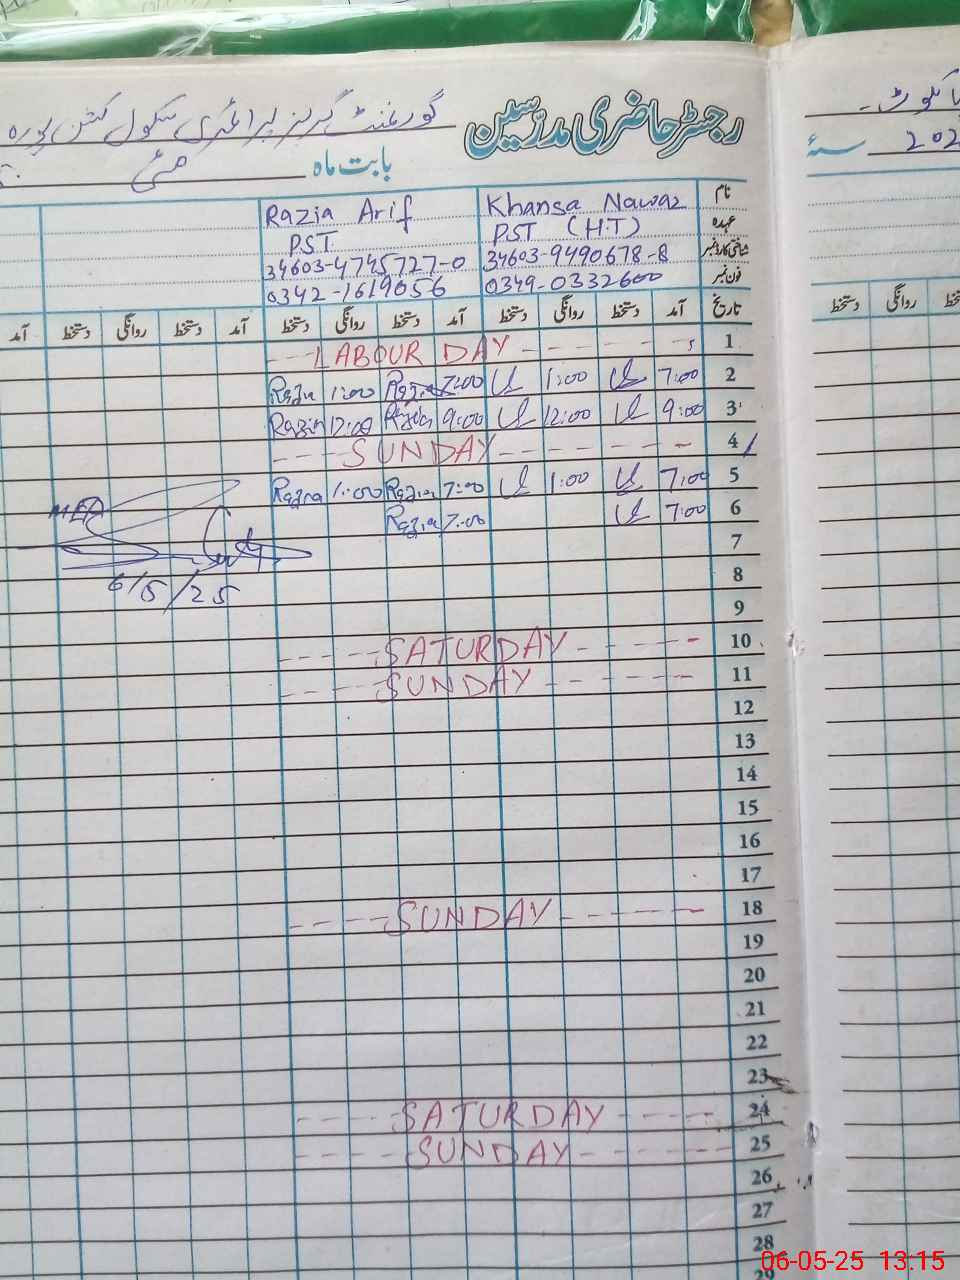 رجسٹر حاضری مدرسین
گورنمنٹ گرلز پرائمری سکول کشن پورہ
بابت ماہ مئی
سنۂ 202
نام Khansa Nawaz Razia Arif
عہدہ PST (H.T) PST
شناختی کارڈ نمبر 34603-9490678-8 34603-4745727-0
فون نمبر 0349-0332600 0342-1619056
تاریخ آمد دستخط روانگی دستخط آمد دستخط روانگی دستخط آمد دستخط روانگی دستخط آمد
1 LABOUR DAY
2 7:00 1:00 7:00 Razia 1:00 Razia
3 9:00 12:00 9:00 Razia 12:00 Razia
4 SUNDAY
5 7:00 1:00 7:00 Razia 1:00 Razia
6 7:00 7:00 Razia
MEA
7
6/5/25
8
9
10 SATURDAY
11 SUNDAY
12
13
14
15
16
17
18 SUNDAY
19
20
21
22
23
24 SATURDAY
25 SUNDAY
26
27
28
29
06-05-25 13:15